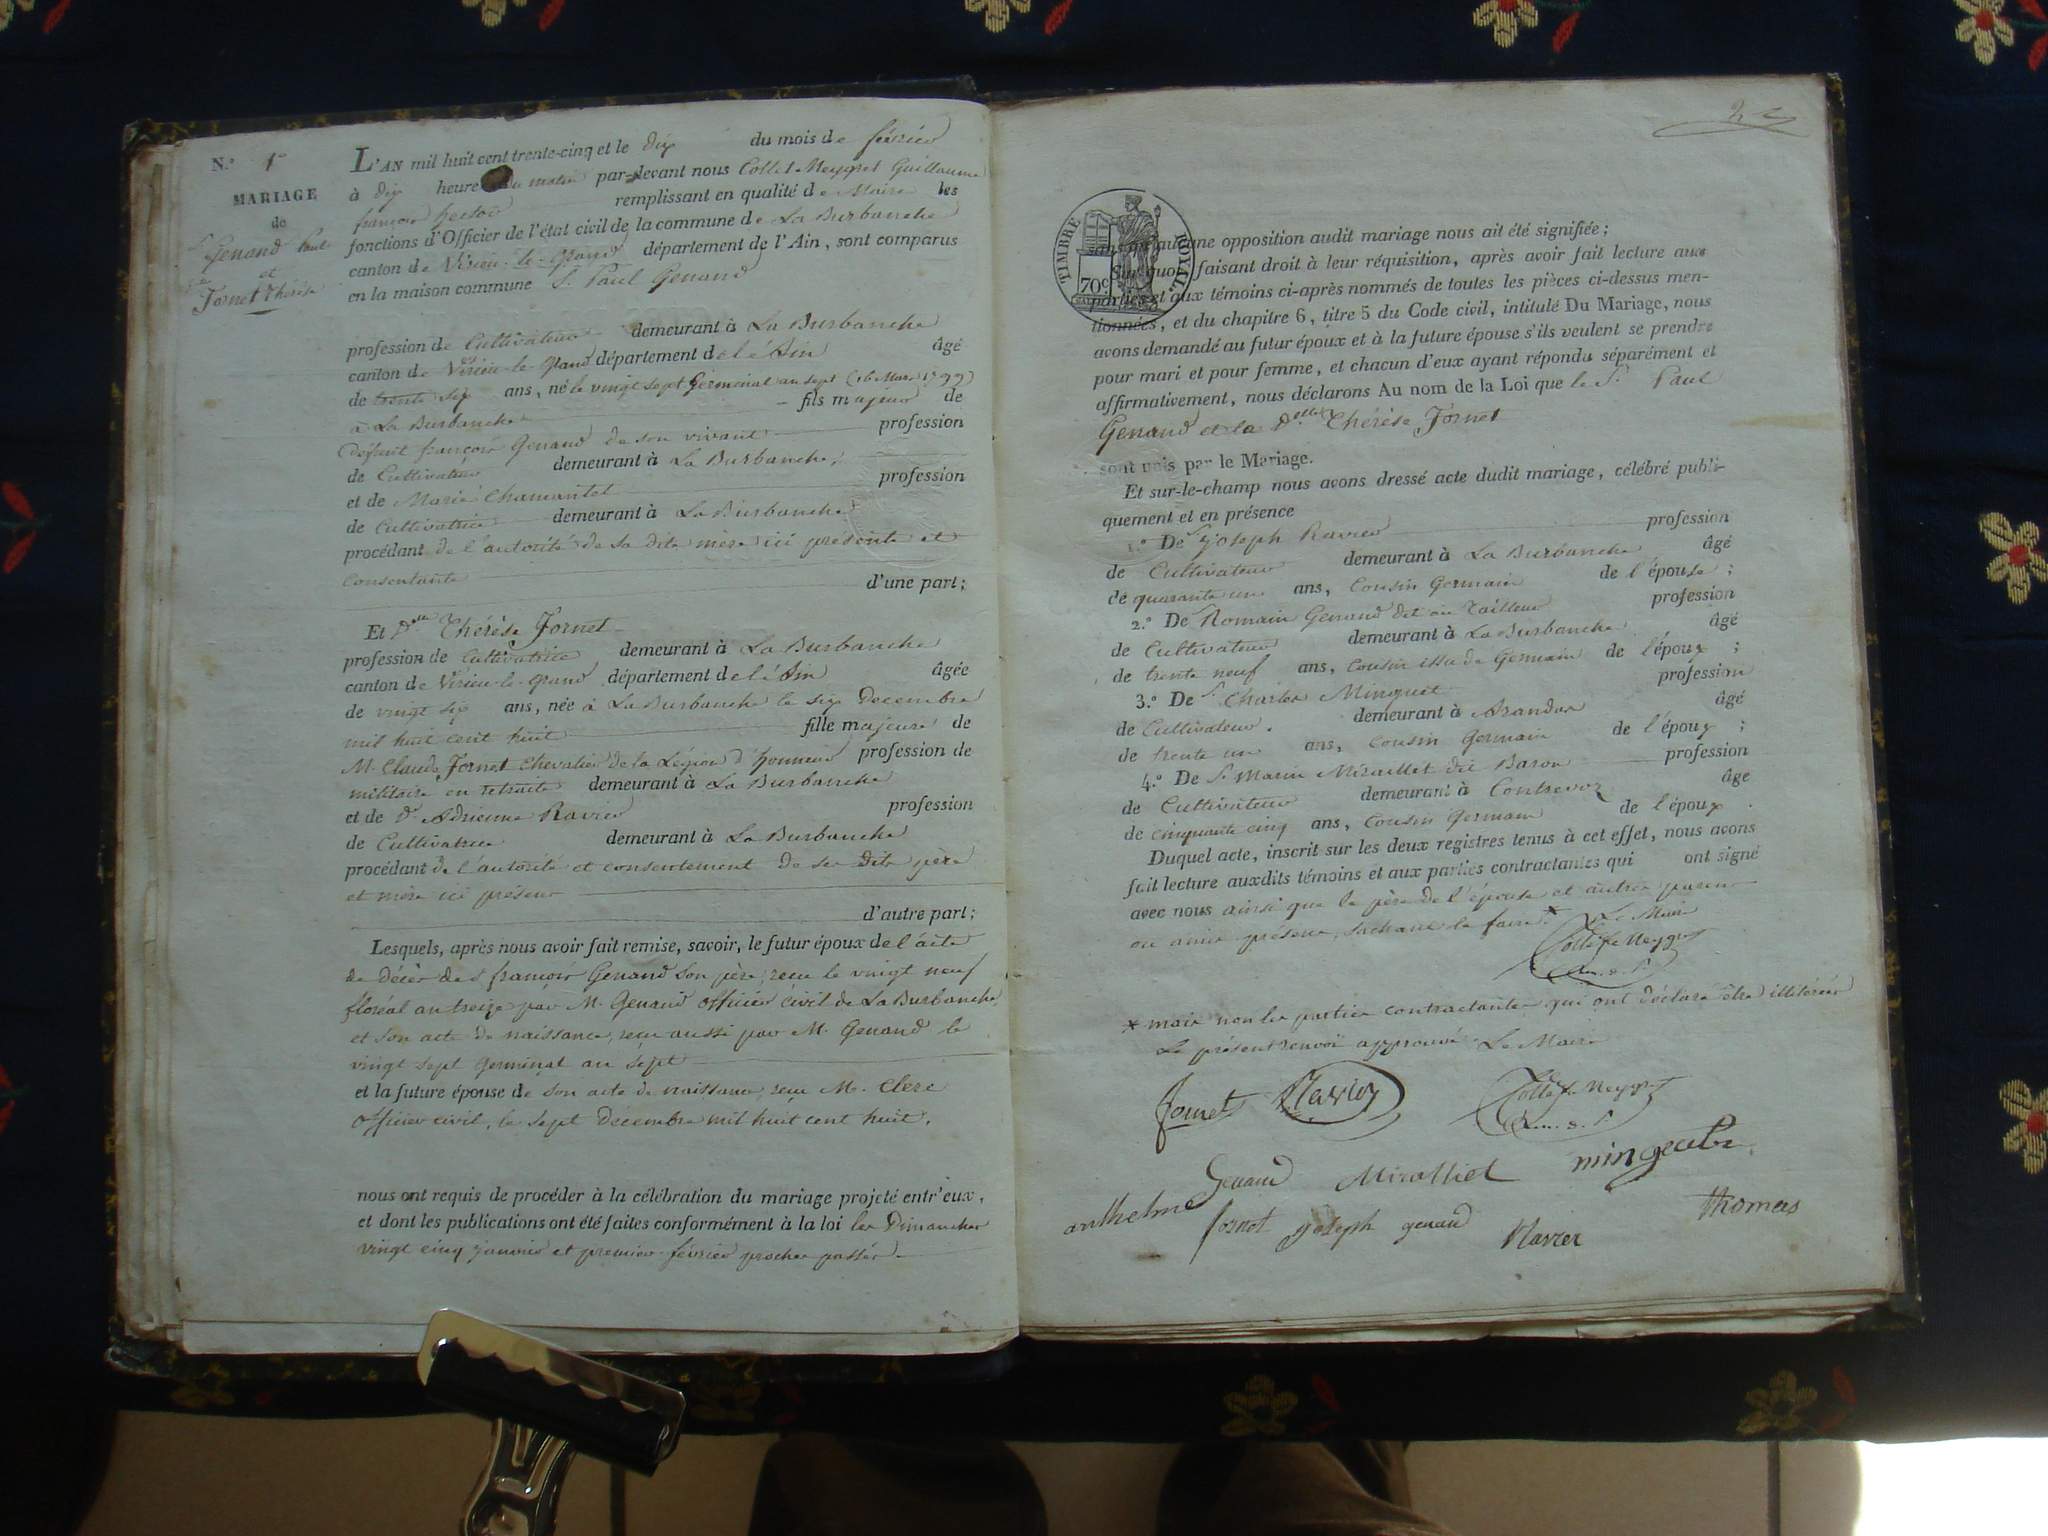 N.º 1er
MARIAGE
de
Genand Paul
et
Jornet Thérèse
L'AN mil huit cent trente-cinq et le dix du mois de février
à dix heures du matin par-devant nous Collet-Meygret Guillaume
françois hector remplissant en qualité de Maire les
fonctions d'Officier de l'état civil de la commune de La Burbanche
canton de Virieu-le-Grand département de l'Ain, sont comparus
en la maison commune S. Paul Genand
profession de Cultivateur demeurant à La Burbanche
canton de Virieu-le-Grand département de l'Ain âgé
de trente six ans, né le vingt sept Germinal an sept (16 Mars 1799)
à La Burbanche fils majeur de
Défunt françois Genand de son vivant profession
de Cultivateur demeurant à La Burbanche,
et de Marie Chamantet profession
de Cultivatrice demeurant à La Burbanche
procédant de l'autorité de sa dite mère ici présente et
consentante d'une part;
Et Delle Thérèse Jornet
profession de Cultivatrice demeurant à La Burbanche
canton de Virieu-le-grand département de l'Ain âgée
de vingt six ans, née à La Burbanche le six Decembre
mil huit cent huit fille majeure de
M. Claude Jornet chevalier de la Légion d'honneur profession de
militaire en retraite demeurant à La Burbanche
et de De Adrienne Ravier profession
de Cultivatrice demeurant à La Burbanche
procédant de l'autorité et consentement de ses dits père
et mère ici présens
d'autre part;
Lesquels, après nous avoir fait remise, savoir, le futur époux de l'acte
de décès de s. françois Genand son père, reçu le vingt neuf
floréal an treize par M. Genand officier civil de La Burbanche
et son acte de naissance, reçu aussi par M. Genand le
vingt sept germinal an sept
et la future épouse de son acte de naissance, reçu M. Clerc
officier civil, le sept Décembre mil huit cent huit.
nous ont requis de procéder à la célébration du mariage projeté entr'eux,
et dont les publications ont été faites conformément à la loi les Dimanches
vingt cinq janvier et premier février proches passés.
2
TIMBRE ROYAL
70c
sans qu'aucune opposition audit mariage nous ait été signifiée;
Sur quoi, faisant droit à leur réquisition, après avoir fait lecture aux
parties et aux témoins ci-après nommés de toutes les pièces ci-dessus men-
tionnées, et du chapitre 6, titre 5 du Code civil, intitulé Du Mariage, nous
avons demandé au futur époux et à la future épouse s'ils veulent se prendre
pour mari et pour femme, et chacun d'eux ayant répondu séparément et
affirmativement, nous déclarons Au nom de la Loi que le S. Paul
Genand et la Delle Thérèse Jornet
sont unis par le Mariage.
Et sur-le-champ nous avons dressé acte dudit mariage, célébré publi-
quement et en présence
1.º De S. Joseph Ravier profession
de Cultivateur demeurant à La Burbanche âgé
de quarante un ans, Cousin Germain de l'épouse;
2.º De Romain Genand dit au Tailleur profession
de Cultivateur demeurant à La Burbanche âgé
de trente neuf ans, Cousin issu de Germain de l'époux;
3.º De S. Charles Minguet profession
de Cultivateur. demeurant à Arandas âgé
de trente un ans, Cousin Germain de l'époux;
4.º De S. Marin Miraillet dit Baron profession
de Cultivateur demeurant à Contrevoz âgé
de cinquante cinq ans, Cousin Germain de l'époux.
Duquel acte, inscrit sur les deux registres tenus à cet effet, nous avons
fait lecture auxdits témoins et aux parties contractantes qui ont signé
avec nous ainsi que le père de l'épouse et autres parens
ou amis présens, sachant le faire.* Le Maire
Collet-Meygret
* mais non les parties contractantes qui ont déclaré être illitérées
Le présent renvoi approuvé. Le Maire
Jornet Ravier Collet-Meygret
Genand Miralliet mingeet
anthelme Jornet joseph genand Ravier thomas